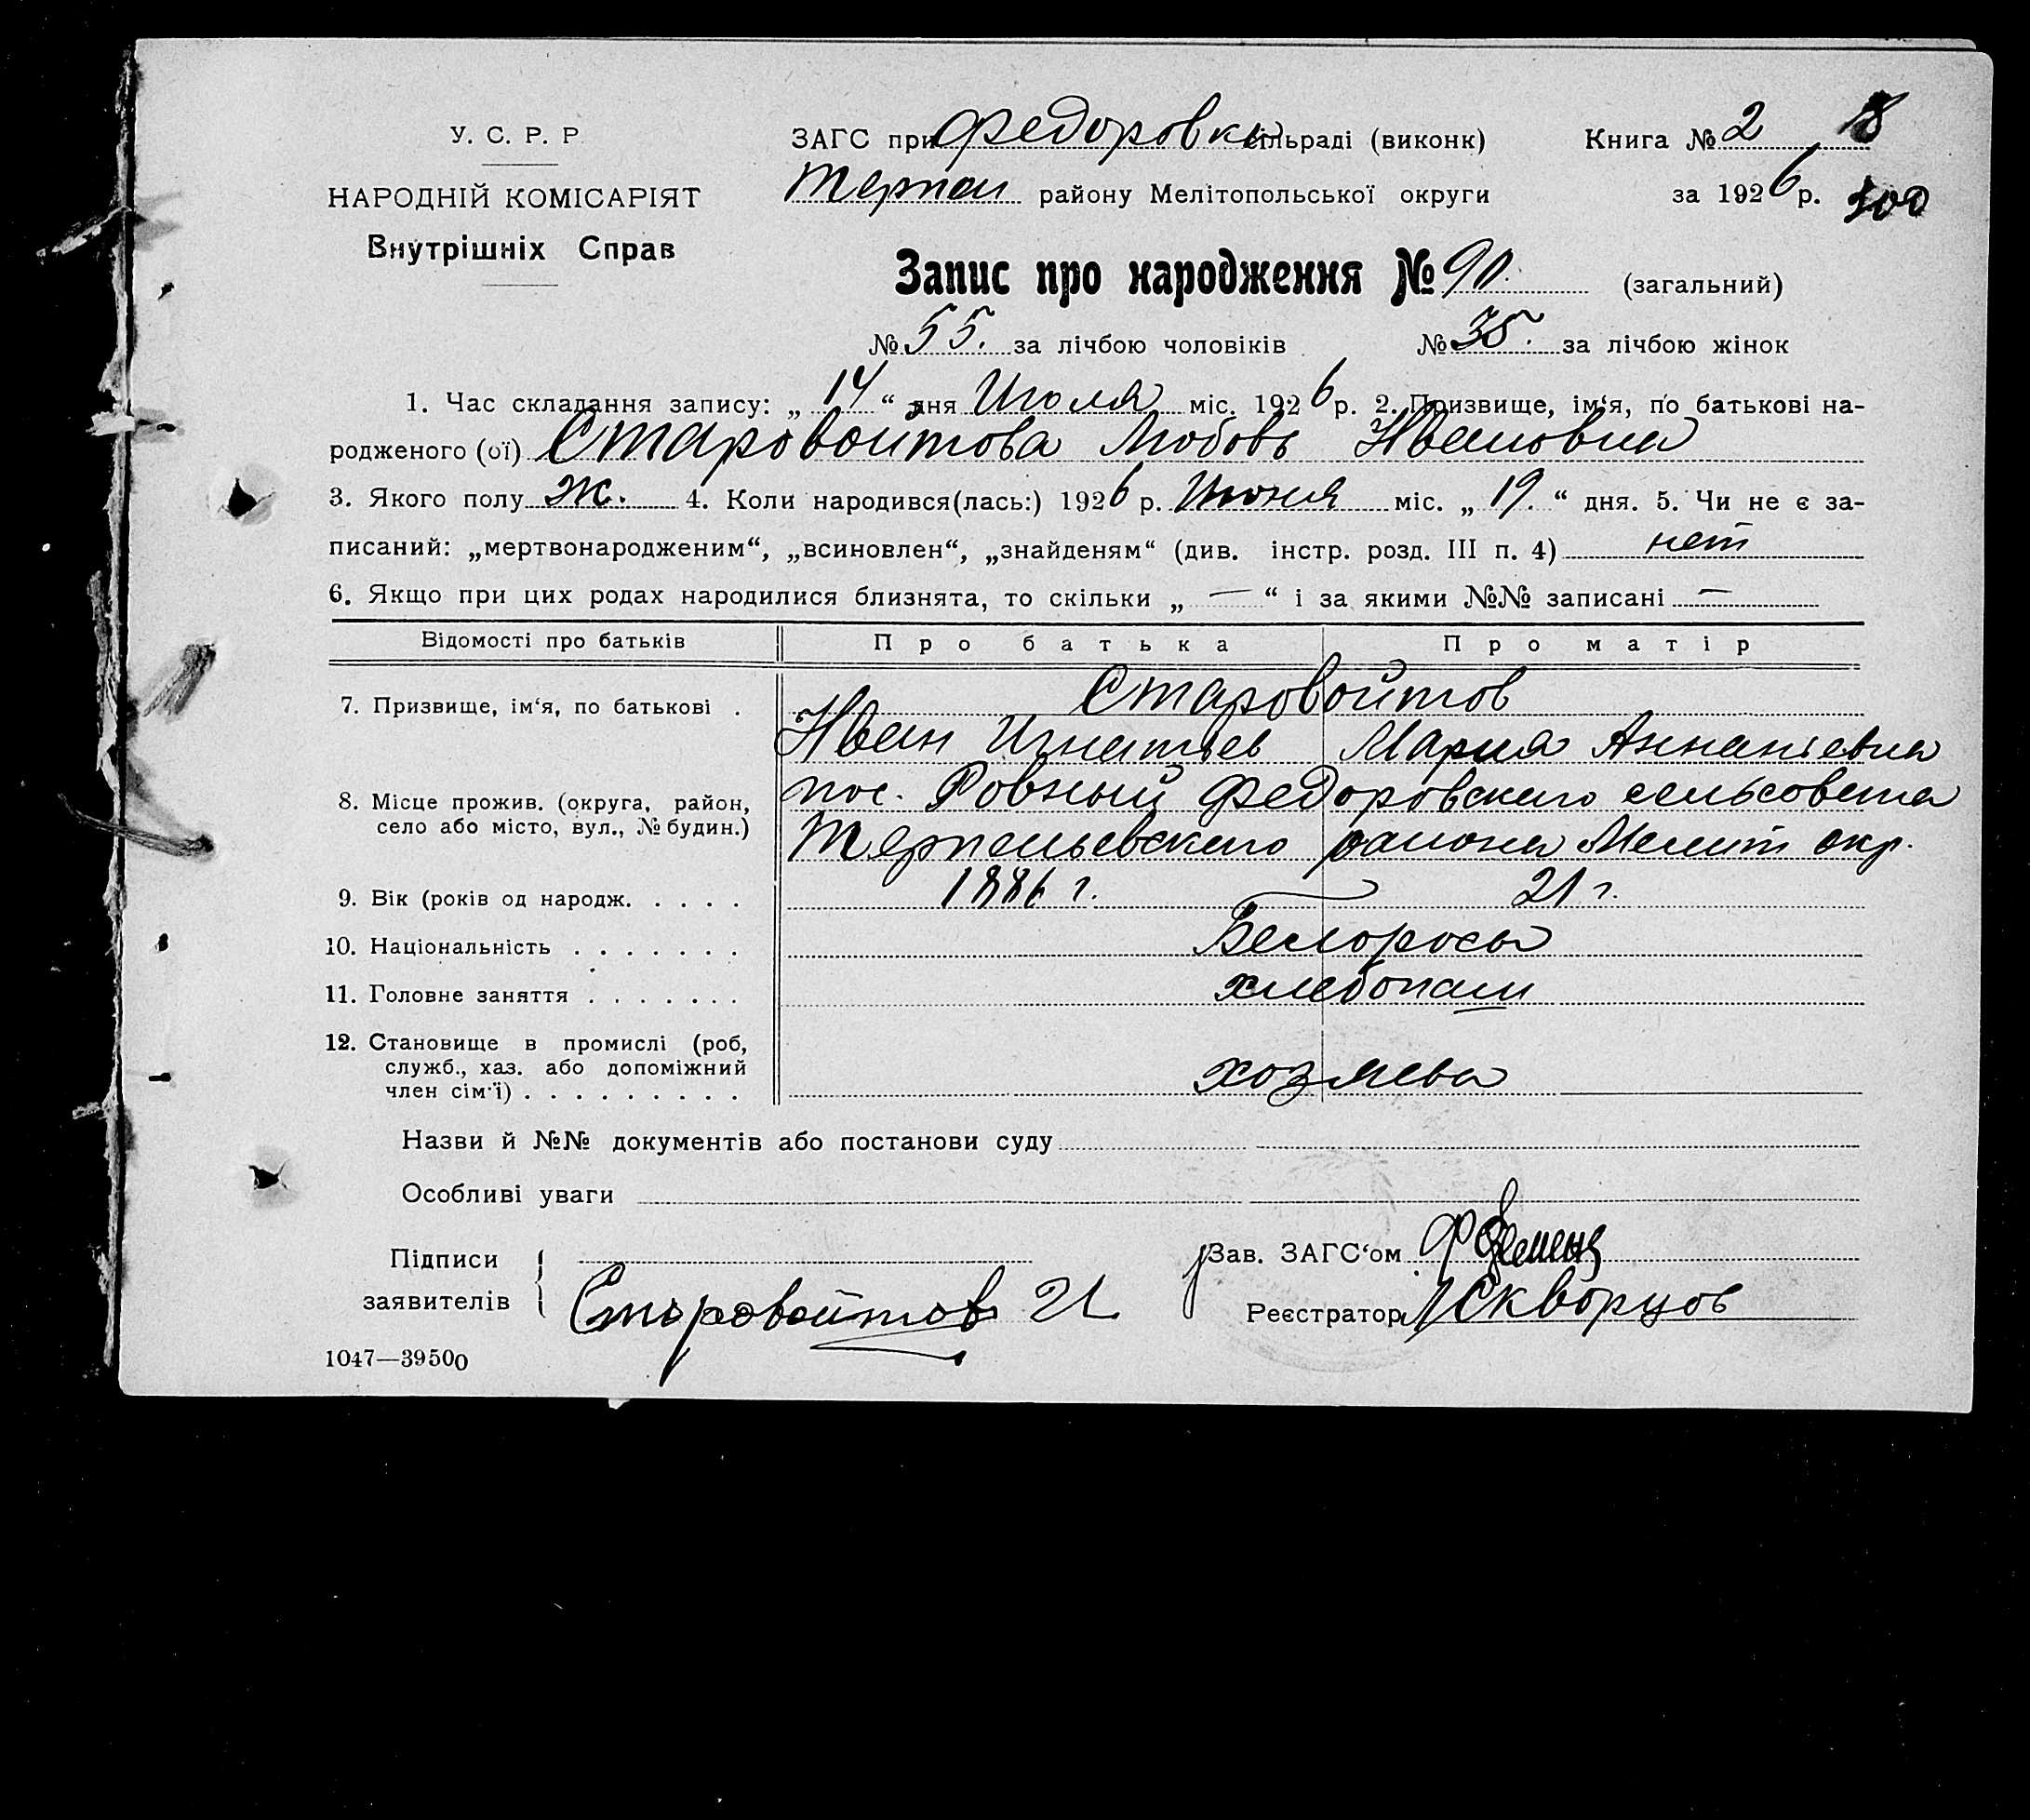 У. С. Р. Р
НАРОДНІЙ КОМІСАРІЯТ
Внутрішніх Справ
ЗАГС при Федоровкы сільраді (виконк) Книга № 2 8
Терпел району Мелітопольської округи за 1926 р. 300
Запис про народження № 90. (загальний)
№ 55. за лічбою чоловіків № 35. за лічбою жінок
1. Час складання запису: „ 14 “ дня Июля міс. 1926 р. 2. Призвище, ім‘я, по батькові на-
родженого (ої) Старовойтова Любовь Ивановна
3. Якого полу ж. 4. Коли народився(лась:) 1926 р. Июня міс. „ 19. “ дня. 5. Чи не є за-
писаний: „мертвонародженим“, „всиновлен“, „знайденям“ (див. інстр. розд. III п. 4) нет
6. Якщо при цих родах народилися близнята, то скільки „ — “ і за якими №№ записані —
Відомості про батьків Про батька Про матір
7. Призвище, ім‘я, по батькові . Старовойтов
Иван Игнатьев Мария Ананиевна
8. Місце прожив. (округа, район, село або місто, вул., № будин.) пос. Ровный Федоровского сельсовета
Терпельевского района Мелит окр.
9. Вік (років од народж. . . . . 1886 г. 21 г.
10. Національність . . . . . . . Белоросы
11. Головне заняття . . . . . . . хлебопаш
12. Становище в промислі (роб,
служб., хаз. або допоміжний
член сім‘ї) . . . . . . . . . хозяева
Назви й №№ документів або постанови суду
Особливі уваги
Підписи Зав. ЗАГС‘ом
заявителів Старовойтов И Реєстратор Скворцов
1047—39500